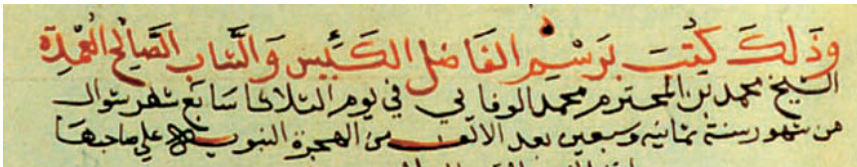 وذلك كتب برسم الفاضل الكيس والشاب الصالح العمدة
الشيخ محمد بن المحترم محمد الوفايي في يوم الثلاثا سابع شهر شوال
من شهور سنة ثمانية وسبعين بعد الالف من الهجرة النبويه علي صاحبها